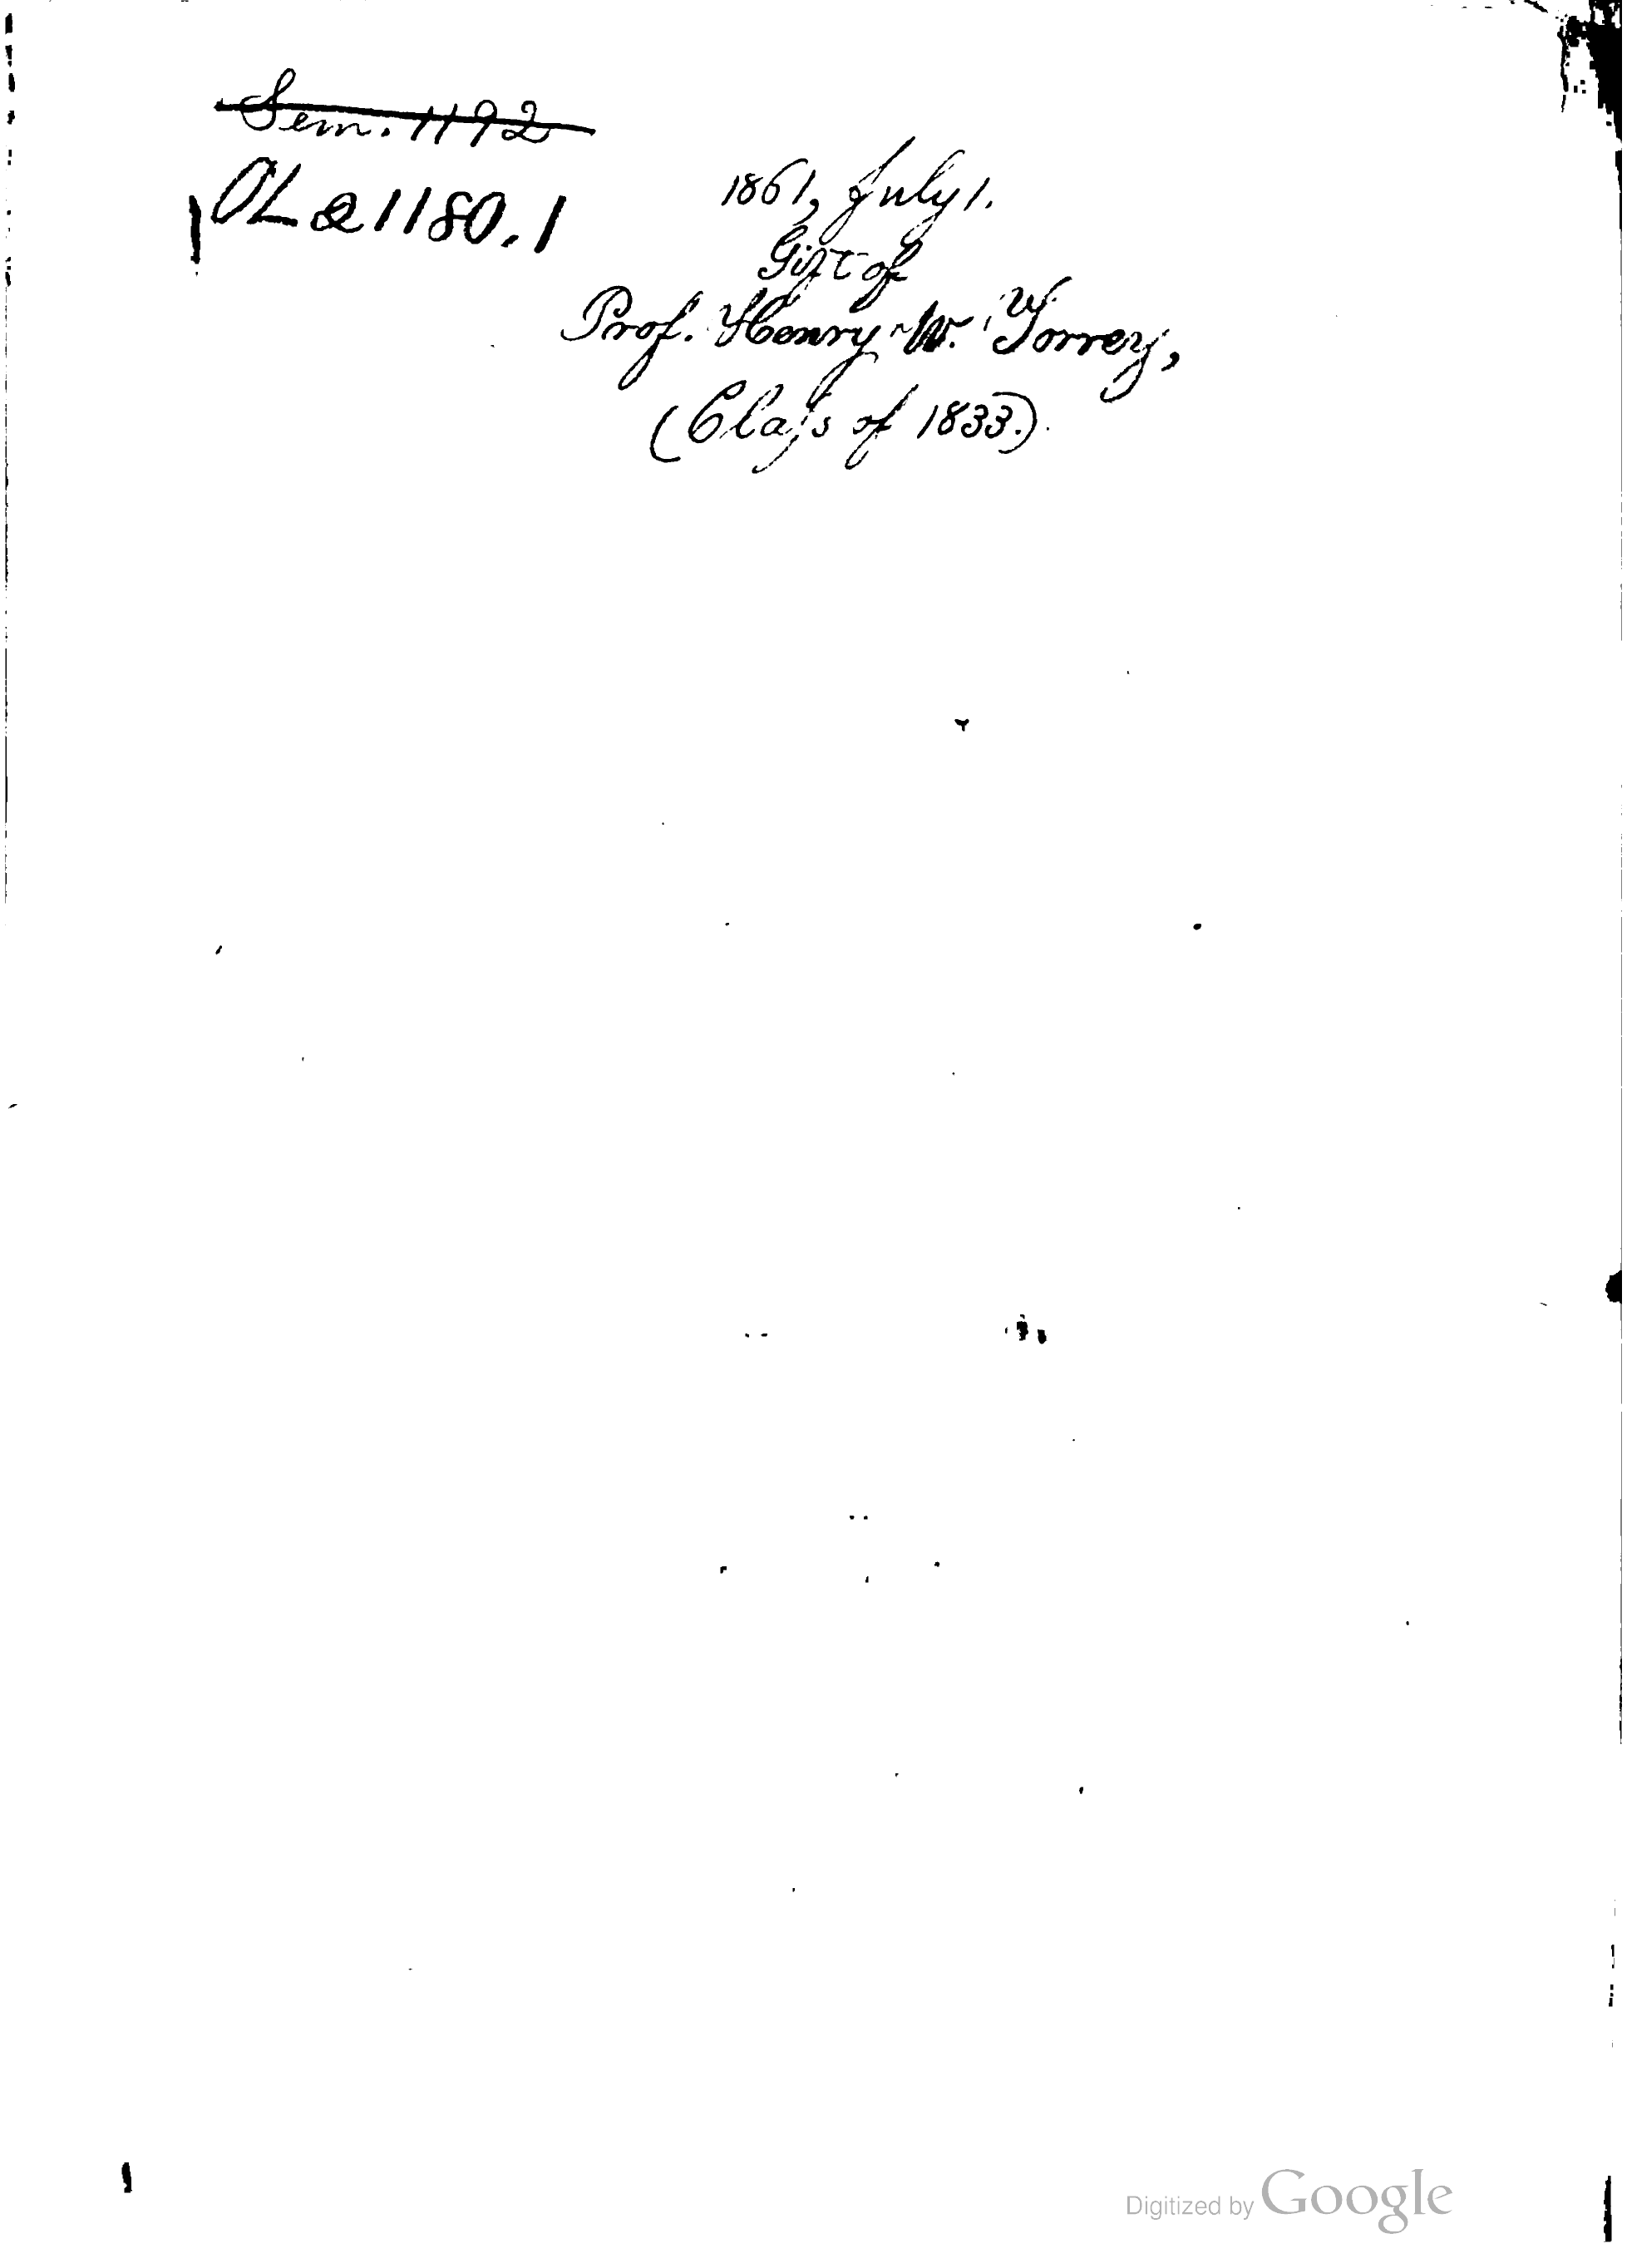 Sem. 1192
OL 21180.1
1861, July 1.
Gift of
Prof. Henry W. Torrey,
(Claſs of 1833.)
Digitized by Google